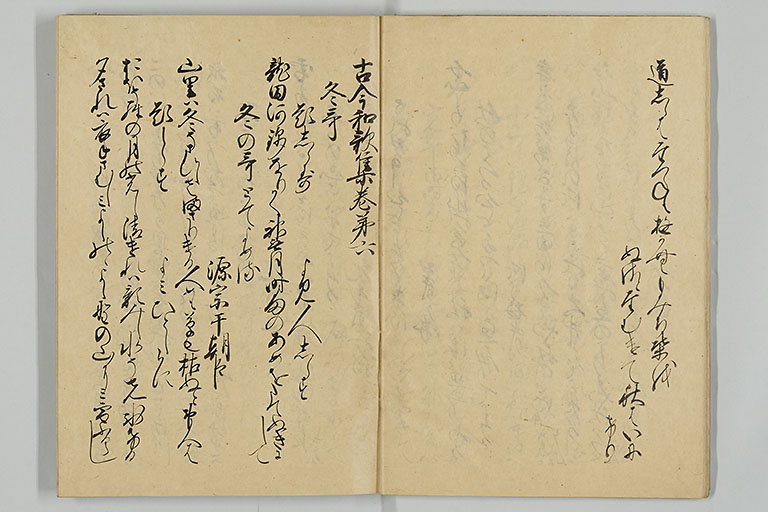 道しらはたつねもゆかむもみち葉を
ぬさとたむけて秋はいに
けり
古今和歌集巻第六
冬哥
題しらす
よみ人しらす
龍田河錦をりかく神無月時雨のあめをたてぬきにして
冬の哥とてよめる
源宗于朝臣
山里は冬そさひしさまさりける人めも草も枯ぬと思へは
題しらす
よみ人しらす
おほそらの月のひかりし清けれは影みし水そまつこほりける
夕されは衣手さむしみよしのゝよしのゝ山にみ雪ふるらし